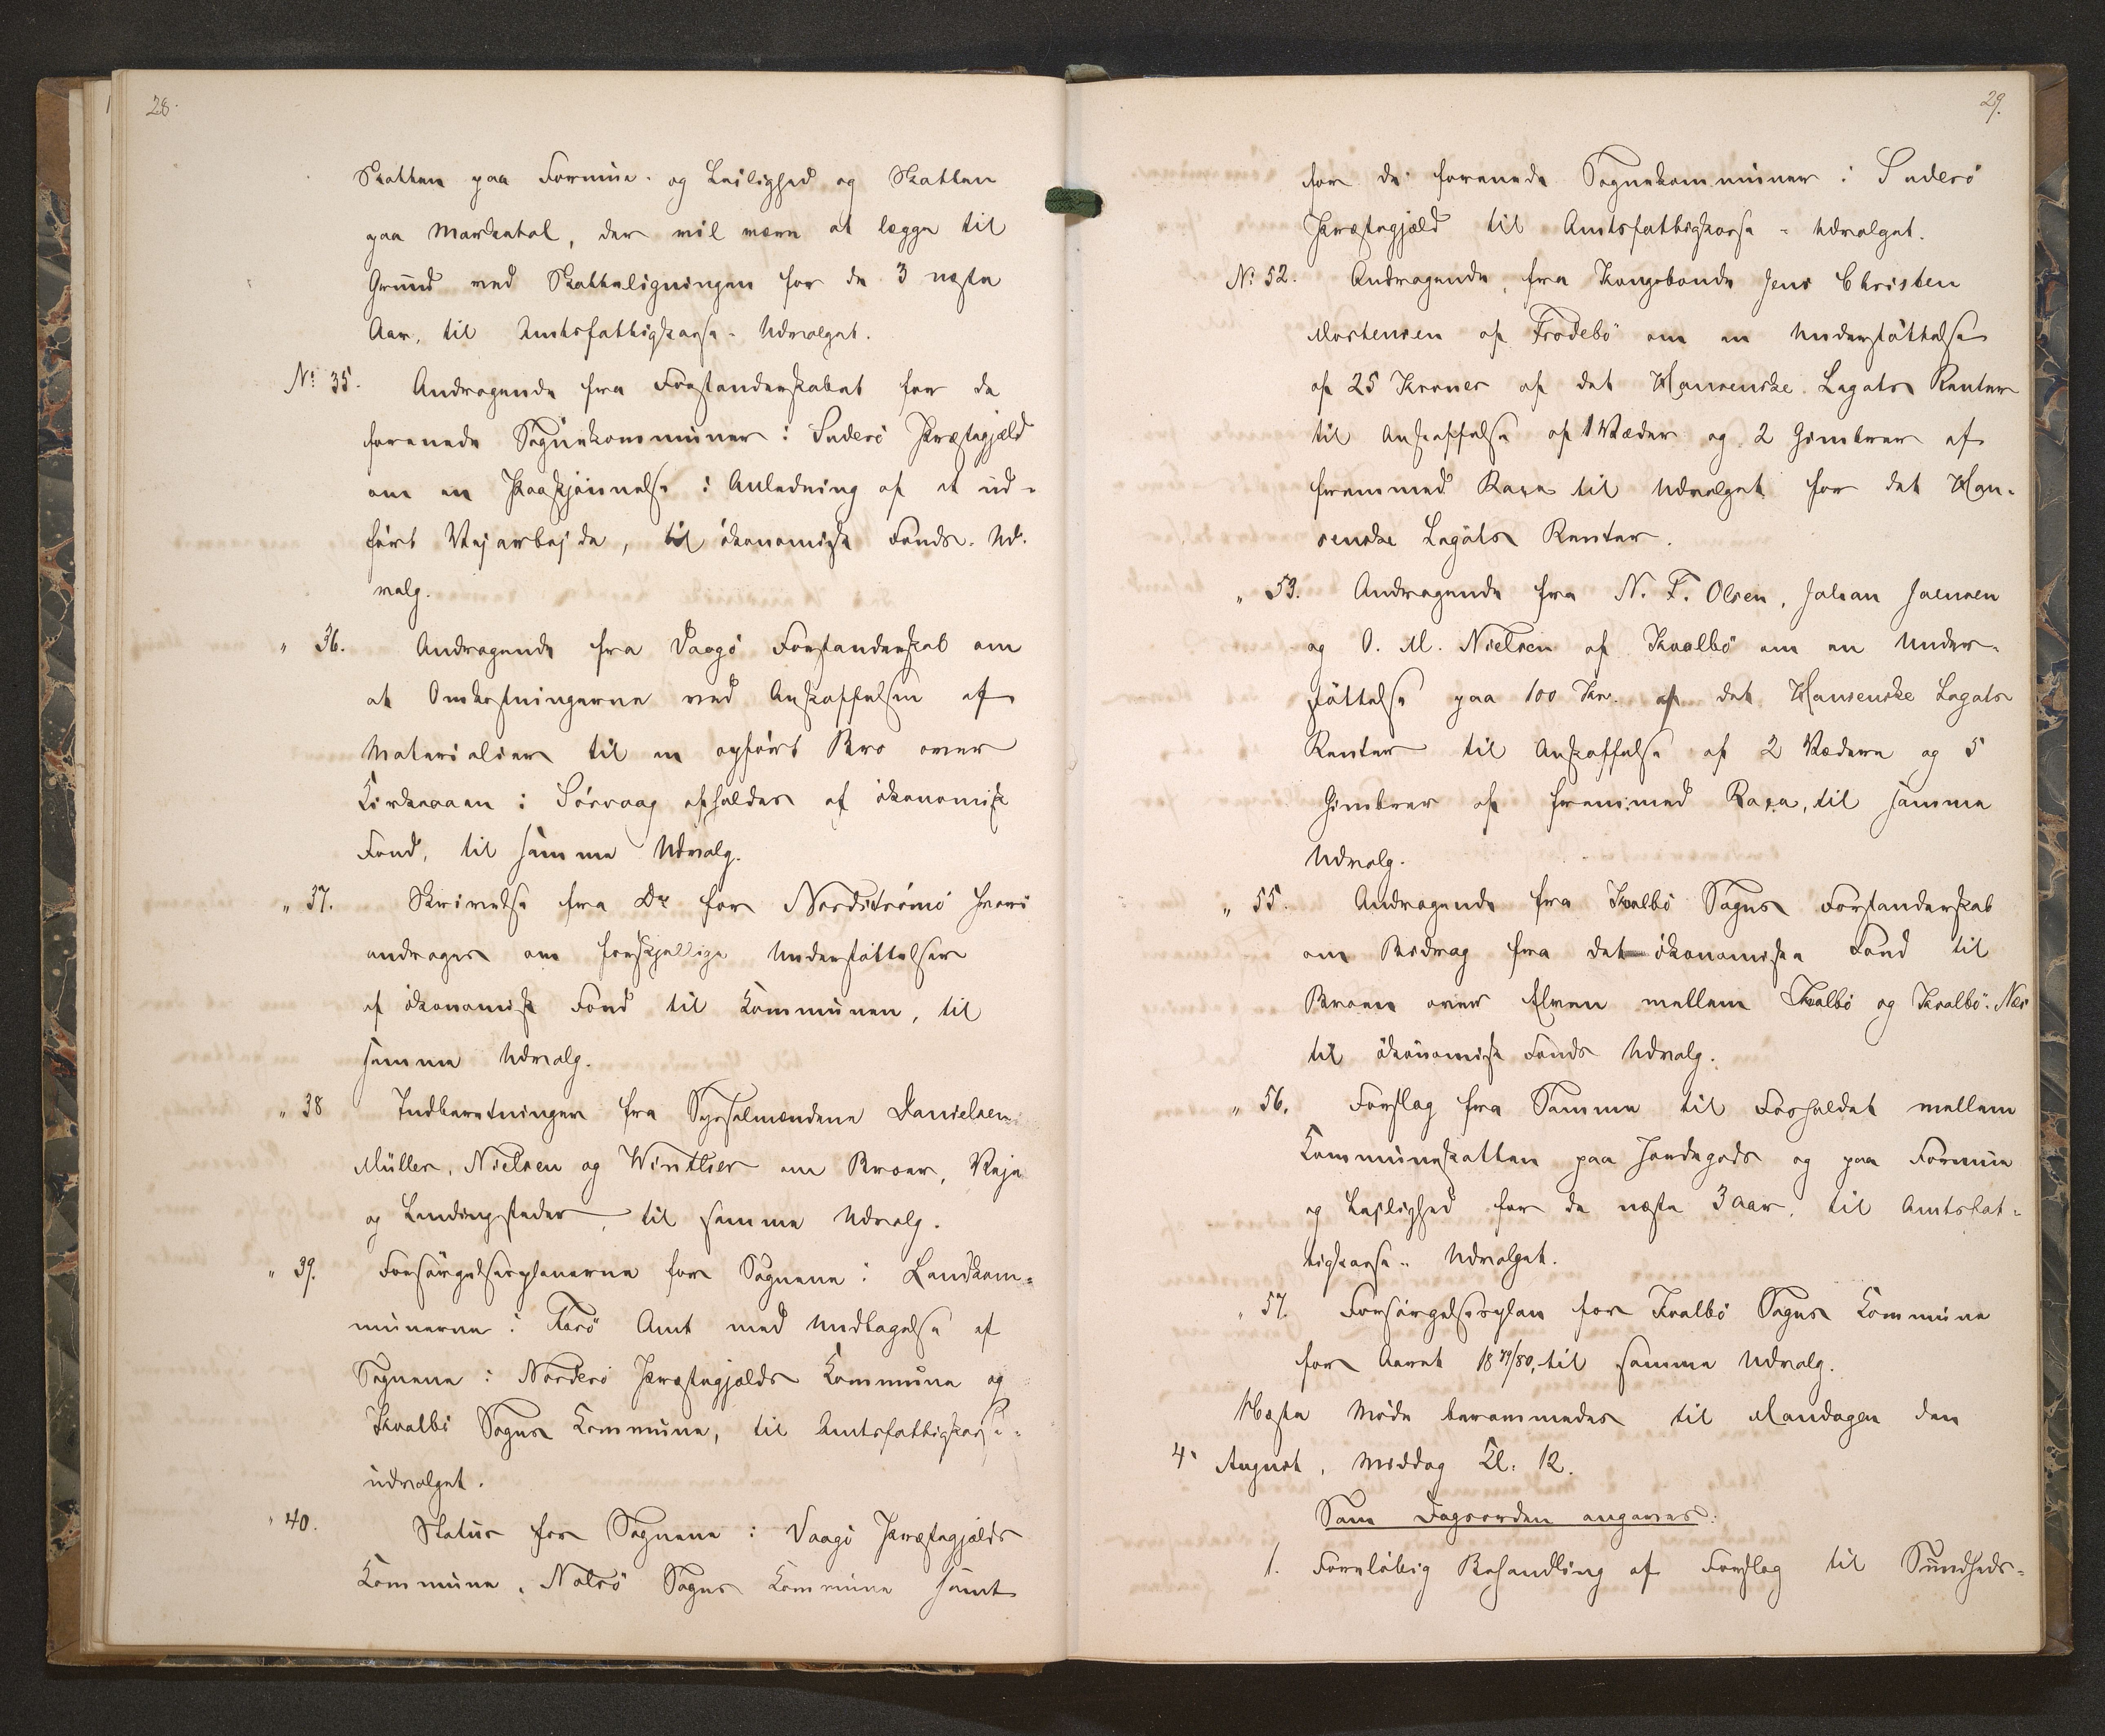 28.
Skatten paa Formue- og Leilighed og Skatten
paa Markatal, der vil være at lægge til
Grund ved Skatteligningen for de 3 næste
Aar, til Amtsfattigkasse-Udvalget.
No 35. Andragende fra Forstanderskabet for de
forenede Sognekommuner i Suderö Præstegjæld
om en Paaskjønnelse i Anledning af et ud-
ført Vejarbejde, til ökonomisk Fonds-Ud-
valg.
„ 36. Andragende fra Vaagö Forstanderskab om
at Omkostningerne ved Anskaffelsen af
Materialier til en opført Bro over
Kirkeaaen i Sörvaag afholdes af ökonomisk
Fond, til samme Udvalg.
„ 37. Skrivelse fra Do for Nordströmö hvori
andrages om forskjellige Understøttelser
af ökonomisk Fond til Kommunen, til
samme Udvalg.
„ 38 Indberetninger fra Sysselmændene Danielsen
Müller, Nielsen og Winther om Broer, Veje
og Landingsteder, til samme Udvalg.
„ 39. Forsörgelsesplanerne for Sognene i Landkom-
munerne i Færö Amt med Undtagelse af
Sognene i Norderö Præstegjælds Kommune og
Kvalbö Sogns Kommune, til Amtsfattigkasse-
udvalget.
„ 40. Status for Sognene i Vaagö Præstegjælds
Kommune, Nolsö Sogns Kommune samt
29.
for de forenede Sognekommuner i Suderö
Præstegjæld til Amtsfattigkasse-Udvalget.
No 52. Andragende, fra Kongsbonde Jens Christen
Mortensen af Frodebö om en Understøttelse
af 25 Kroner af det Hansenske Legats Renter
til Anskaffelse af 1 Væder og 2 Gimbrer af
fremmed Race til Udvalget for det Han-
senske Legats Renter.
„ 53. Andragende fra N. F. Olsen, Johan Joensen
og O. M. Nielsen af Kvalbö om en Under-
støttelse paa 100 Kr. af det Hansenske Legats
Renter til Anskaffelse af 2 Vædere og 5
Gimbrer af fremmed Race, til samme
Udvalg.
„ 55. Andragende fra Kvalbö Sogns Forstanderskab
om Bidrag fra det ökonomiske Fond til
Broen over Elven mellem Kvalbö og Kvalbö-Næs
til ökonomisk Fonds Udvalg.
„ 56. Forslag fra Samme til Forholdet mellem
Kommuneskatten paa Jordegods og paa Formue
og Lejlighed for de næste 3 Aar, til Amtsfat-
tigkasse-Udvalget.
„ 57. Forsörgelsesplan for Kvalbö Sogns Kommune
for Aaret 1879/80, til samme Udvalg.
Næste Møde berammedes til Mandagen den
4. August, Middag Kl. 12.
Som Dagsorden angaves:
1. Foreløbig Behandling af Forslag til Sundheds-